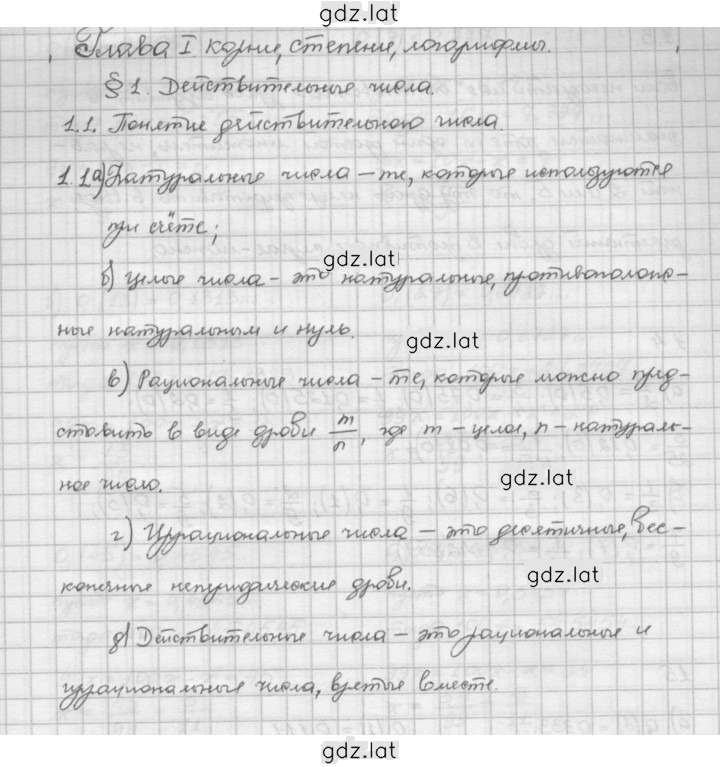 gdz.lat
Глава I корни, степени, логарифмы.
§ 1. Действительные числа.
1.1. Понятие действительного числа.
1.1а) Натуральные числа – те, которые используются
при счёте;
gdz.lat
б) целые числа – это натуральные, противополож-
ные натуральным и нуль.
gdz.lat
в) Рациональные числа – те, которые можно пред-
ставить в виде дроби m/n, где m – целое, n – натураль-
ное число.
gdz.lat
г) Иррациональные числа – это десятичные, бес-
конечные непериодические дроби.
gdz.lat
д) Действительные числа – это рациональные и
иррациональные числа, взятые вместе.
gdz.lat